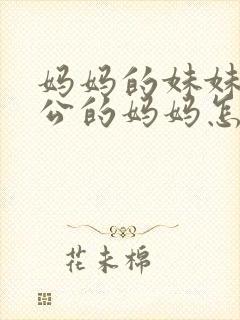 妈妈的妹妹
公的妈妈怎
花未棉